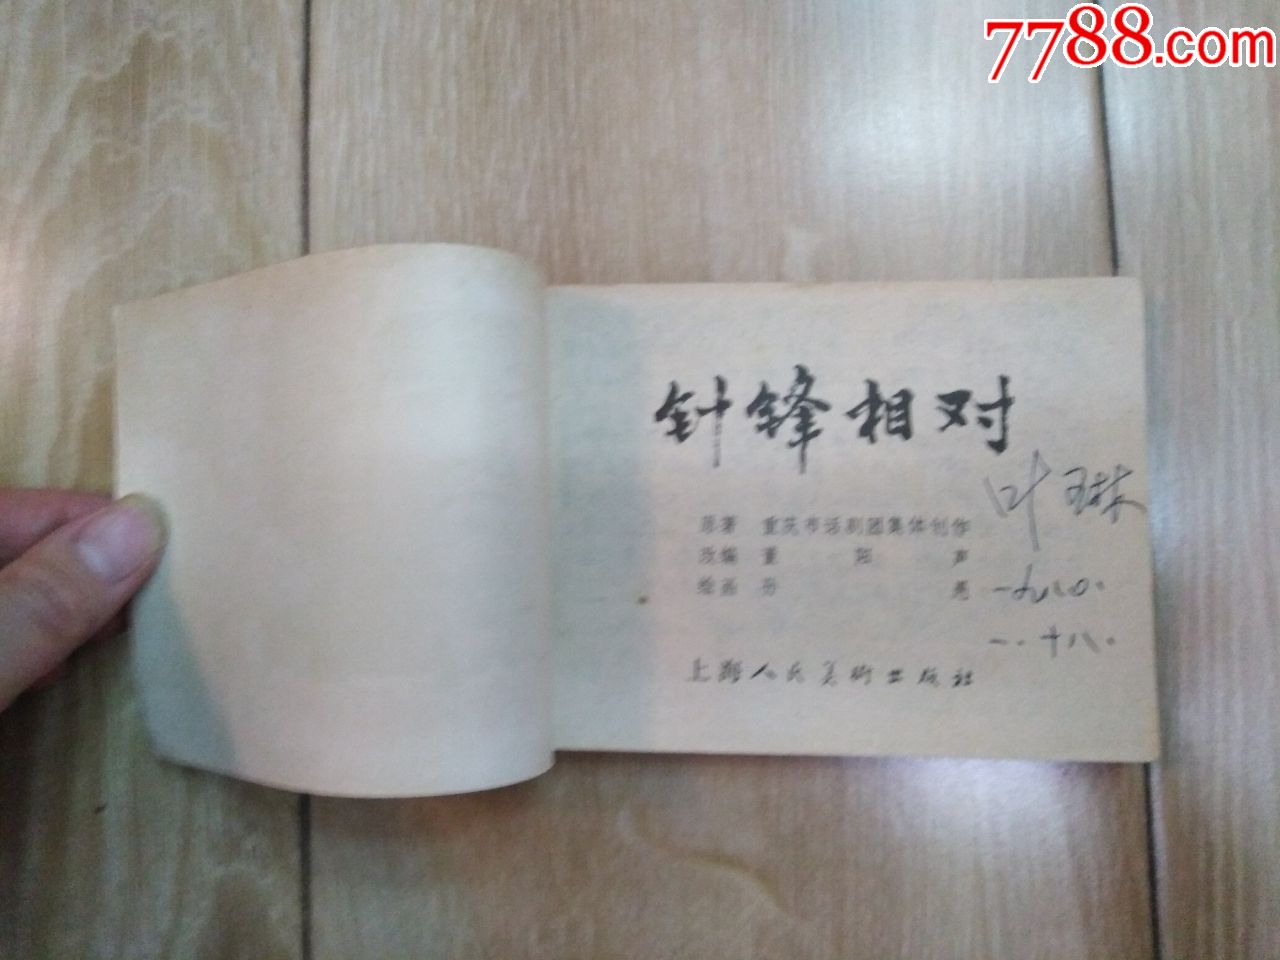 7788.com
针锋相对
原著 重庆市话剧团集体创作
改编 董阳声
绘画 丹亮
上海人民美术出版社
叶琳
一九八〇.
一.十八.